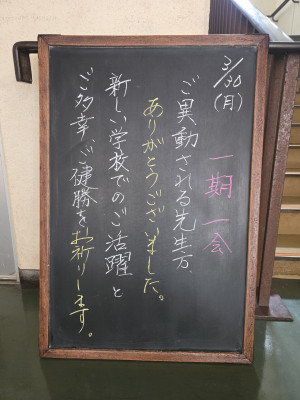 3/30(月)
一期一会
ご異動される先生方、
ありがとうございました。
新しい学校でのご活躍と
ご多幸、ご健勝をお祈りします。